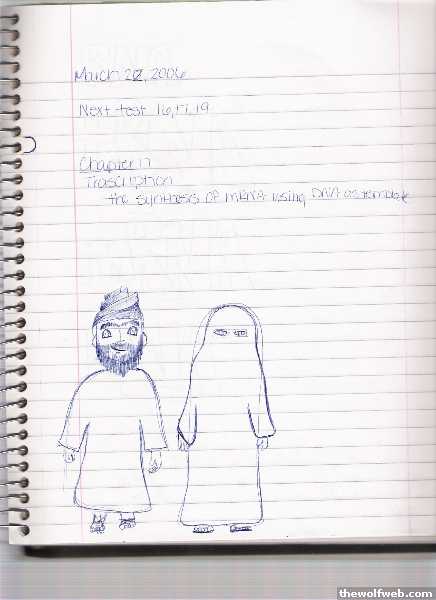 March 22, 2006
Next test 16, 17, 19
Chapter 17
Trascription
the synthesis of mRNA using DNA as template
thewolfweb.com